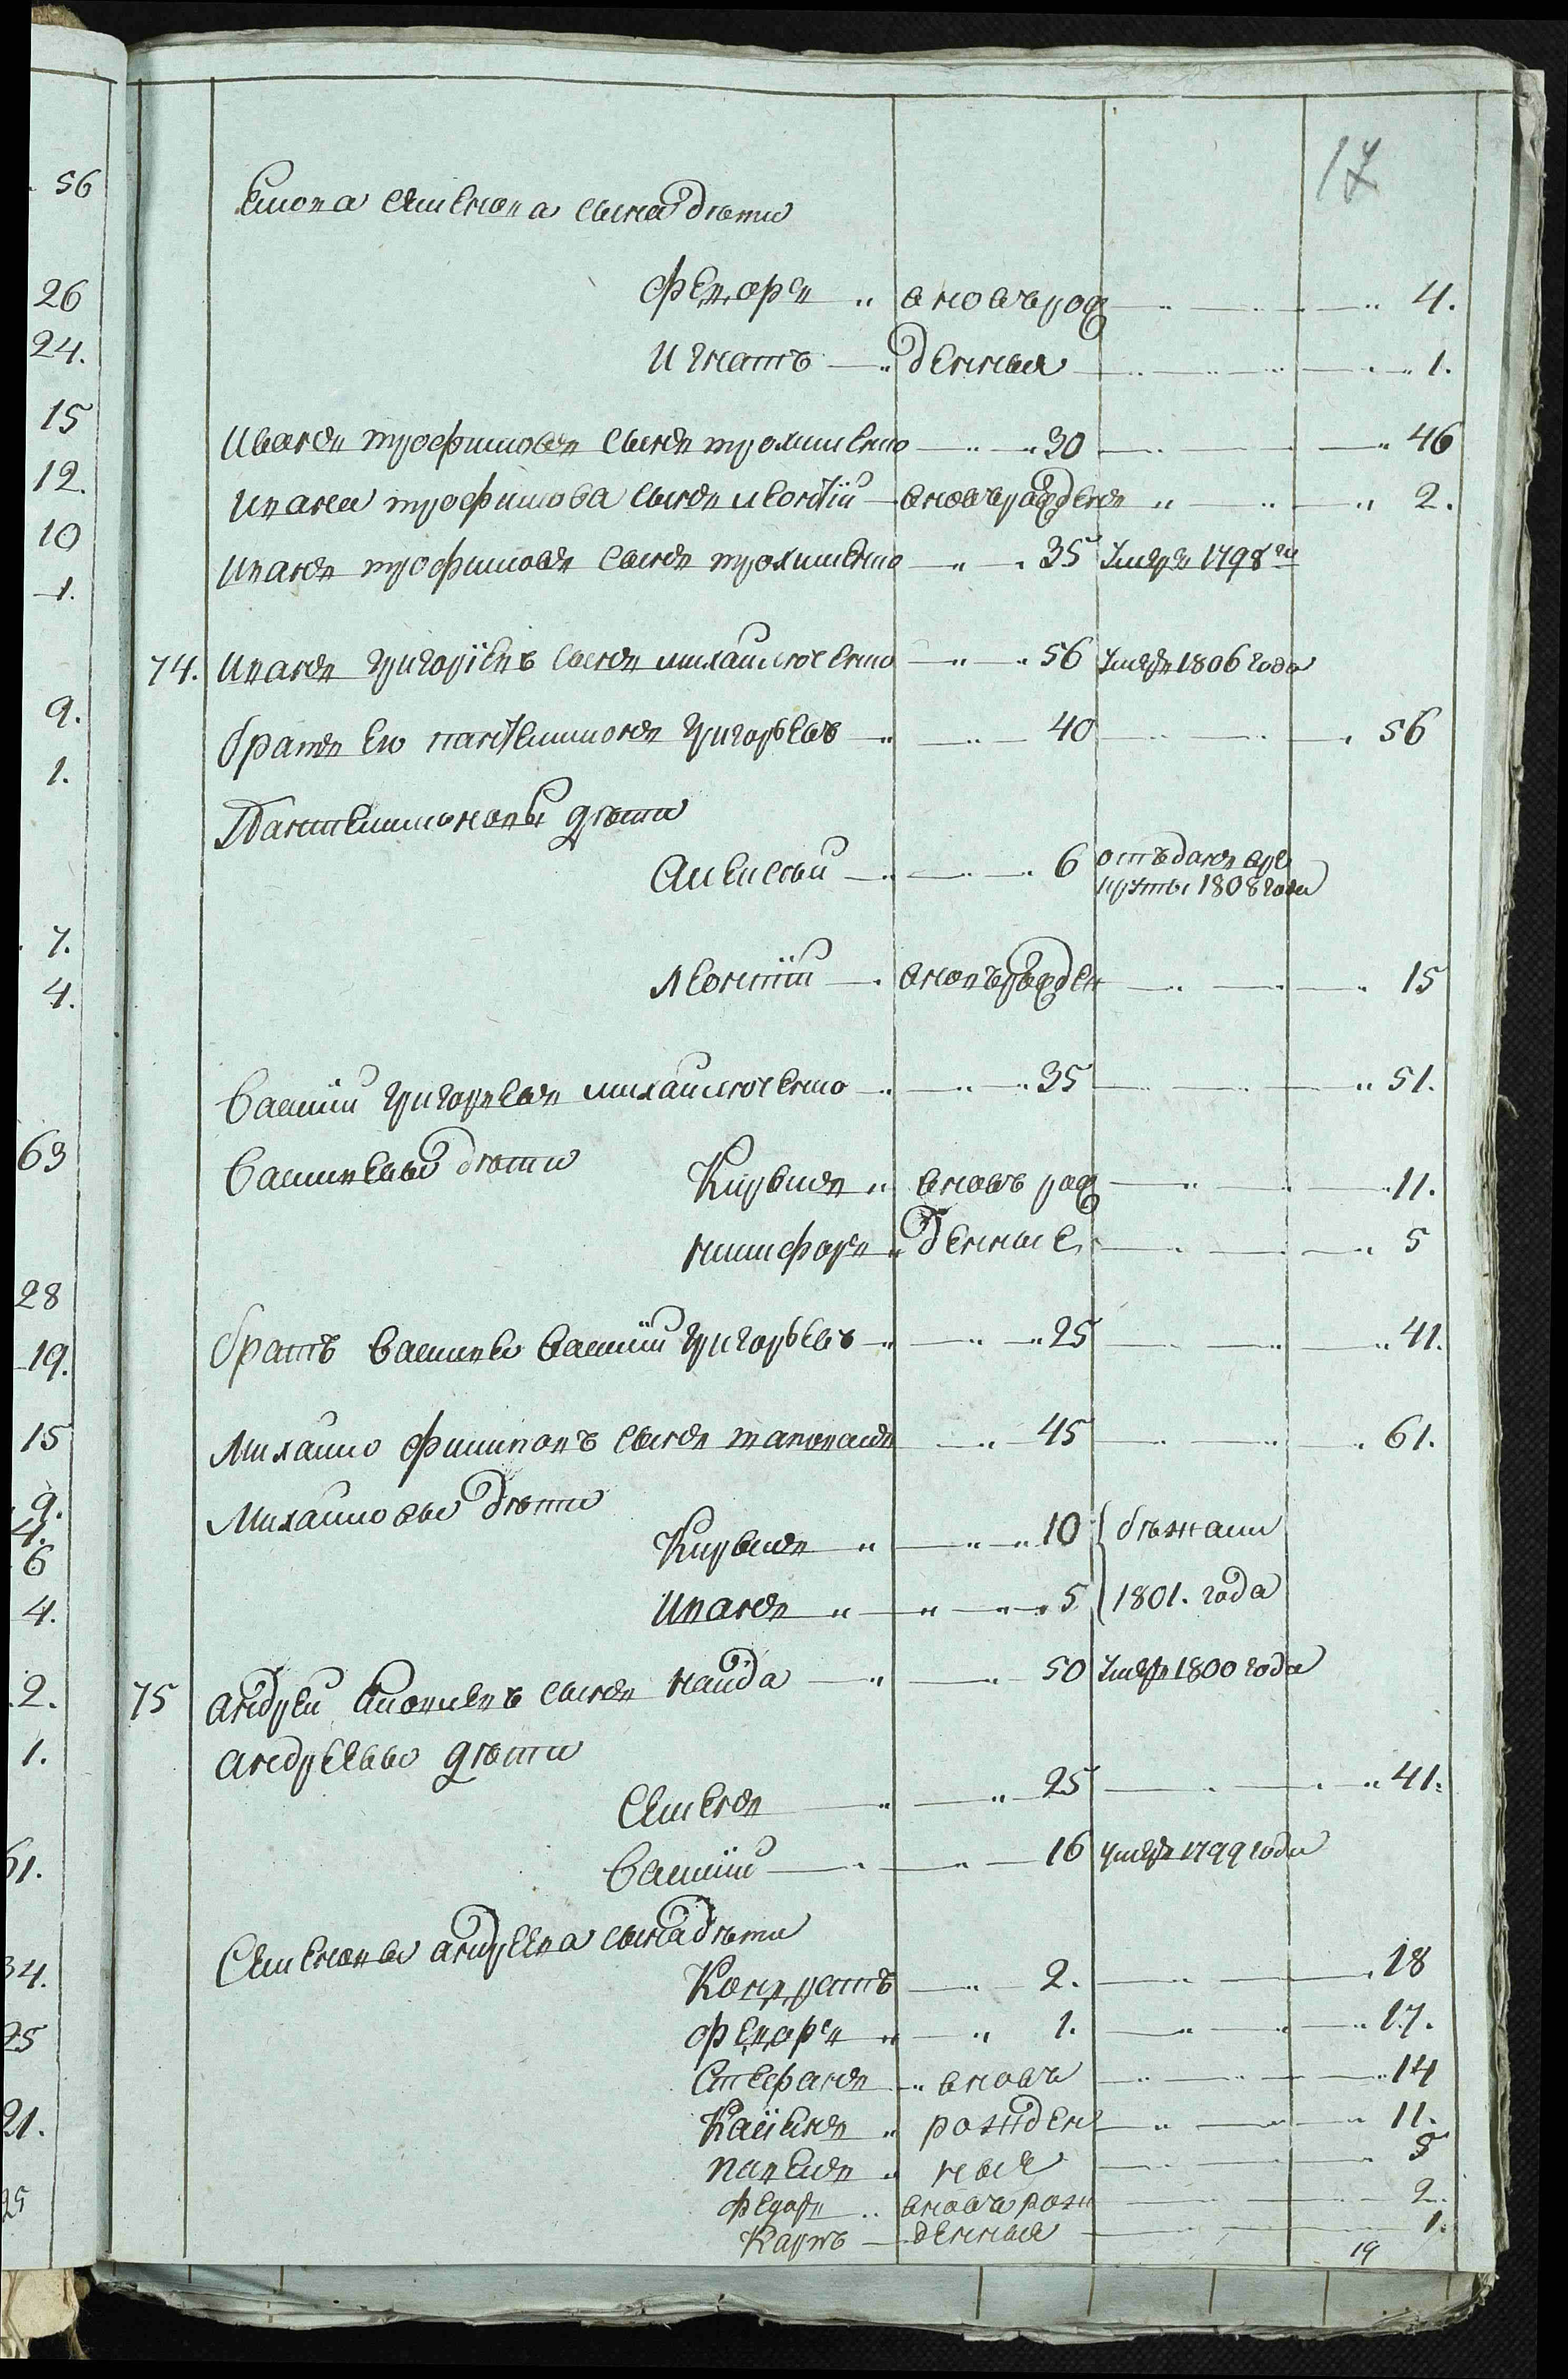 17
Емона Семенова сына дети
Федоръ вновь рож 4.
Игнатъ денныя 1.
Иванъ трофимовъ сынъ трохименко 30 46
Ивана трофимова сынъ леонтіи вновь рожденъ 2.
Иванъ трофимовъ сынъ трохименко 35 Умеръ 1798 го
74. Иванъ григоріевъ сынъ михаиличенко 56 Умеръ 1806 года
братъ ево пантелимонъ григорьевъ 40 56
Пантелимоновы дѣти
Алексѣи 6 отъданъ врѣ
круты 1808 года
Леонтіи вновь рожден 15
Василіи григорьевъ михаиличенко 35 51.
Васильевы дѣти
Кирылъ вновь рож 11.
никифоръ денные 5
братъ васильевъ василіи григорьевъ 25 41.
Михаило филиповъ сынъ шаповалъ 45 61.
Михаиловы дѣти
Кирылъ 10 бѣжали
Иванъ 5 1801. года
75 андреи сынъ наида 50 Умеръ 1800 года
андреевы дѣти
Семенъ 25 41.
Василіи 16 умеръ 1799 года
Семеновы андреева сына дѣти
Кондратъ 2. 18
Федоръ 1. 17.
Стефанъ вновь 14
рожден 11.
павелъ ныя 5
Федоръ вновь рож 2.
Карпъ денныя 1.
19
56
26
24.
15
12.
10
1.
9.
1.
7.
4.
63
28
19.
15
9.
4.
6
4.
2.
1.
61.
34.
25
21.
25